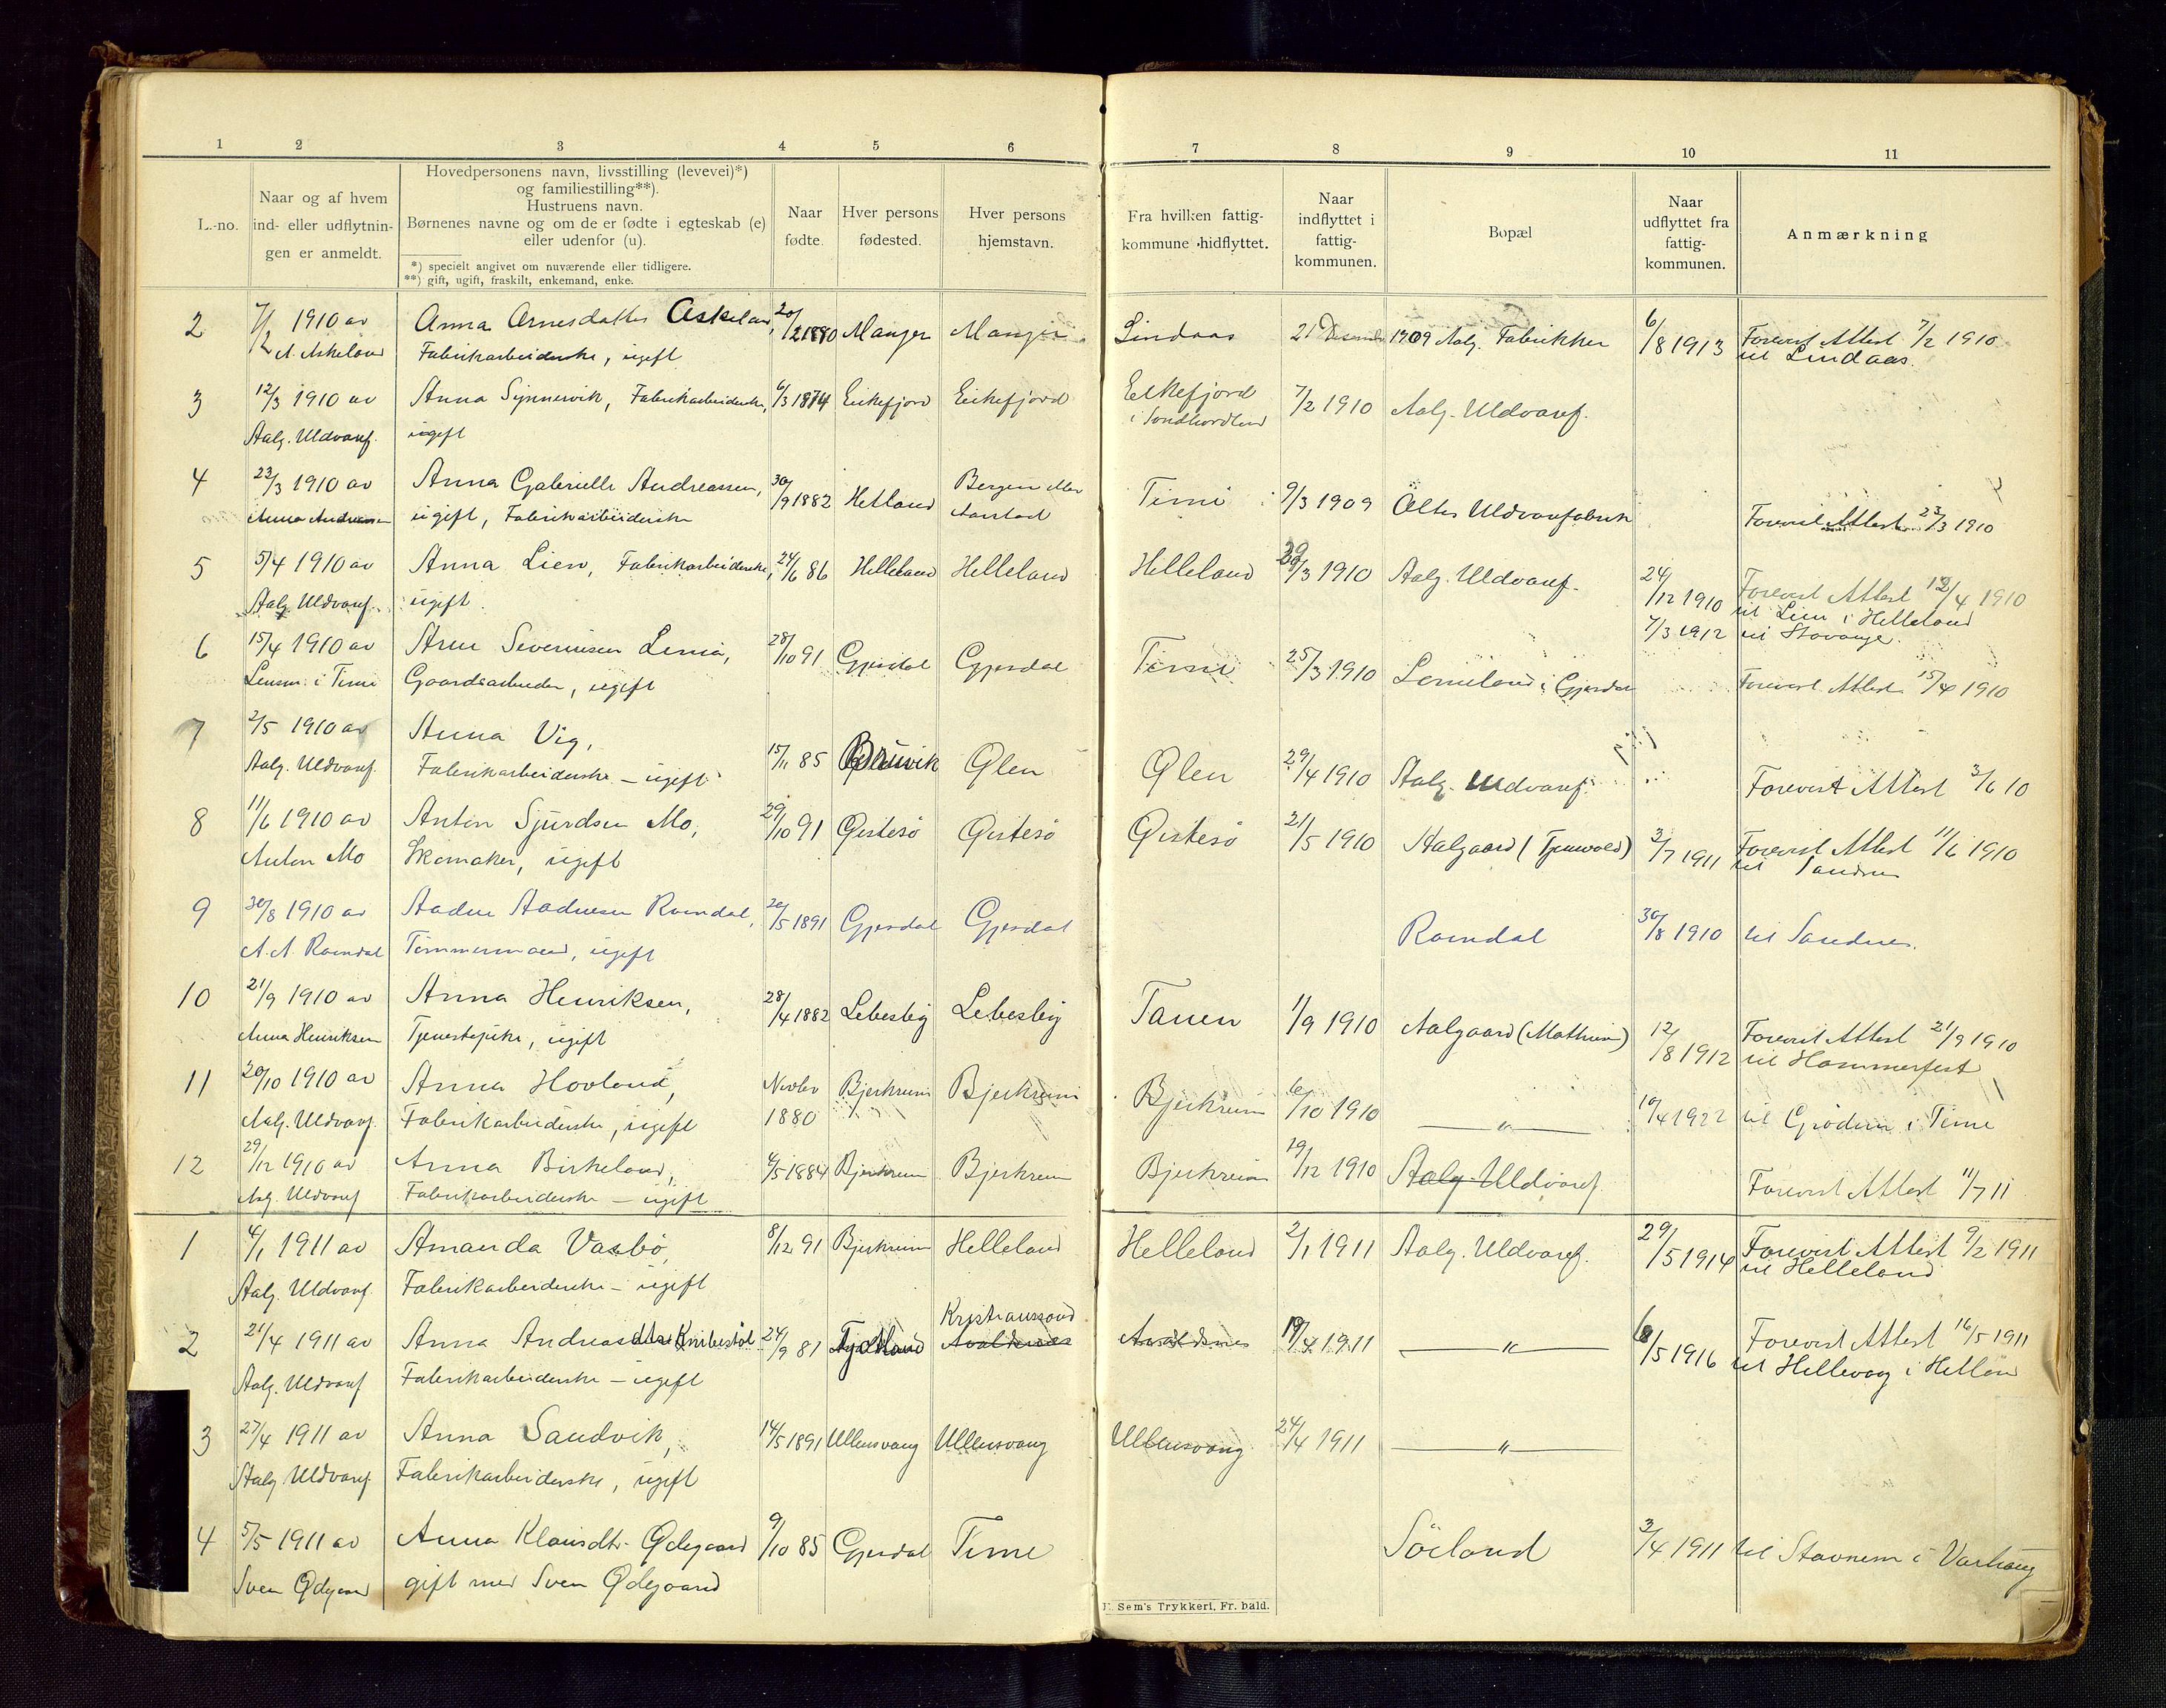 1 2 3 4 5 6 7 8 9 10 11
L.-no.
Naar og af hvem
ind- eller udflytnin-
gen er anmeldt.
Hovedpersonens navn, livsstilling (levevei)*)
og familiestilling**).
Hustruens navn.
Børnenes navne og om de er fødte i egteskab (e)
eller udenfor (u).
*) specielt angivet om nuværende eller tidligere.
**) gift, ugift, fraskilt, enkemand, enke.
Naar
fødte.
Hver persons
fødested.
Hver persons
hjemstavn.
Fra hvilken fattig-
kommune hidflyttet.
Naar
indflyttet i
fattig-
kommunen.
Bopæl
Naar
udflyttet fra
fattig-
kommunen.
Anmærkning
2 7/2 1910 av Anna Arnesdatter Askeland, 20/2 1880 Manger Manger Lindaas 21 Desember 1909 Aalg. Fabrikker 6/8 1913 Forevist Attest 7/2 1910
A. Askeland Fabrikarbeiderske, ugift til Lindaas.
3 12/3 1910 av Anna Synnevik, Fabrikarbeiderske, 6/3 1874 Eikefjord Eikefjord Eikefjord 7/2 1910 Aalg. Uldvaref.
Aalg. Uldvaref. ugift i Søndhordland
4 23/3 1910 av Anna Gabrielle Andreassen, 30/9 1882 Hetland Bergen eller Time 9/3 1909 Aalg. Uldvarefabrik Forevist Attest 23/3 1910
Anna Andreassen ugift, Fabrikarbeiderske Aarstad
5 5/4 1910 av Anna Lien, Fabrikarbeiderske, 24/6 86 Helleland Helleland Helleland 30/3 1910 Aalg. Uldvaref. 24/12 1910 Forevist Attest 12/4 1910
Aalg. Uldvaref. ugift til Lien i Helleland
7/3 1912 til Stavanger
6 15/4 1910 av Arne Severinsen 28/10 91 Gjesdal Gjesdal Time 25/3 1910 i Gjesdal Forevist Attest 15/4 1910
Lensm. i Time Gaardsarbeider, ugift
7 2/5 1910 av Anna Vig, 15/11 85 Bruvik Ølen Ølen 29/4 1910 Aalg. Uldvaref. Forevist Attest 3/6 10
Aalg. Uldvaref. Fabrikarbeiderske – ugift
8 11/6 1910 av Anton Sjurdsen Mo, 29/10 91 Øistesø Øistesø Øistesø 21/5 1910 Aalgaard 3/7 1911 Forevist Attest 11/6 1910
Anton Mo Skomaker, ugift til Sandnes
9 30/8 1910 av Aadne Aadnesen Ravndal, 20/5 1891 Gjesdal Gjesdal Ravndal 30/8 1910 til Sandnes.
A. A. Ravndal Tømmermand, ugift
10 21/9 1910 av Anna Henriksen, 28/4 1882 Lebesby Lebesby Tanen 1/9 1910 Aalgaard (Mathisen) 12/8 1912 Forevist Attest 21/9 1910
Anna Henriksen Tjenestepike, ugift til Hammerfest
11 20/10 1910 av Anna Hovland, Novbr 1880 Bjerkreim Bjerkreim Bjerkreim 6/10 1910 — " — 19/4 1922 til Grødem i Time
Aalg. Uldvaref. Fabrikarbeiderske, ugift
12 29/12 1910 av Anna Birkeland, 4/5 1884 Bjerkreim Bjerkreim Bjerkreim 19/12 1910 Aalg. Uldvaref. Forevist Attest 11/7 11
Aalg. Uldvaref Fabrikarbeiderske – ugift
1 4/1 1911 av Amanda Vasbø, 8/12 91 Bjerkreim Helleland Helleland 2/1 1911 Aalg. Uldvaref. 29/5 1914 Forevist Attest 9/2 1911
Aalg. Uldvaref. Fabrikarbeiderske – ugift til Helleland
2 21/4 1911 av Anna Andreasdtr Knibestøl 24/9 81 Kristianssand Avaldsnes Avaldsnes 19/4 1911 — " — 6/5 1916 Forevist Attest 16/5 1911
Aalg. Uldvaref Fabrikarbeiderske – ugift til Hillevaag i Hetland
3 27/4 1911 av Anna Sandvik, 14/5 1891 Ullensvang Ullensvang Ullensvang 24/4 1911 — " —
Aalg Uldvaref. Fabrikarbeiderske, ugift
4 5/5 1911 av Anna Klausdtr. Ødegaard 9/10 85 Gjesdal Time Søiland 3/4 1911 til Stavnem i Varhaug
Sven Ødegaard gift med Sven Ødegaard
E. Sem's Trykkeri, Fr. hald.